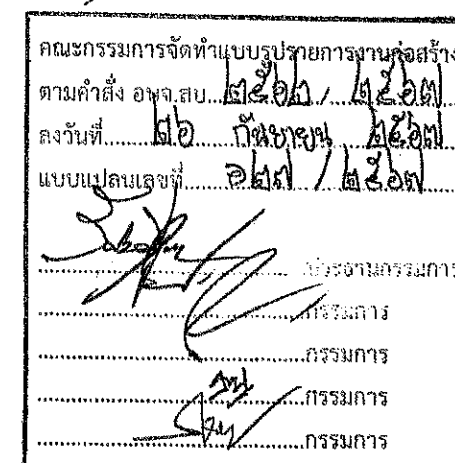 คณะกรรมการจัดทำแบบรูปรายการงานก่อสร้าง
ตามคำสั่ง อบจ.สบ...๒๕๖๒ / ๒๕๖๗
ลงวันที่...๒๖ กันยายน ๒๕๖๗
แบบแปลนเลขที่...๑๒๗ / ๒๕๖๗
ประธานกรรมการ
กรรมการ
กรรมการ
กรรมการ
กรรมการ